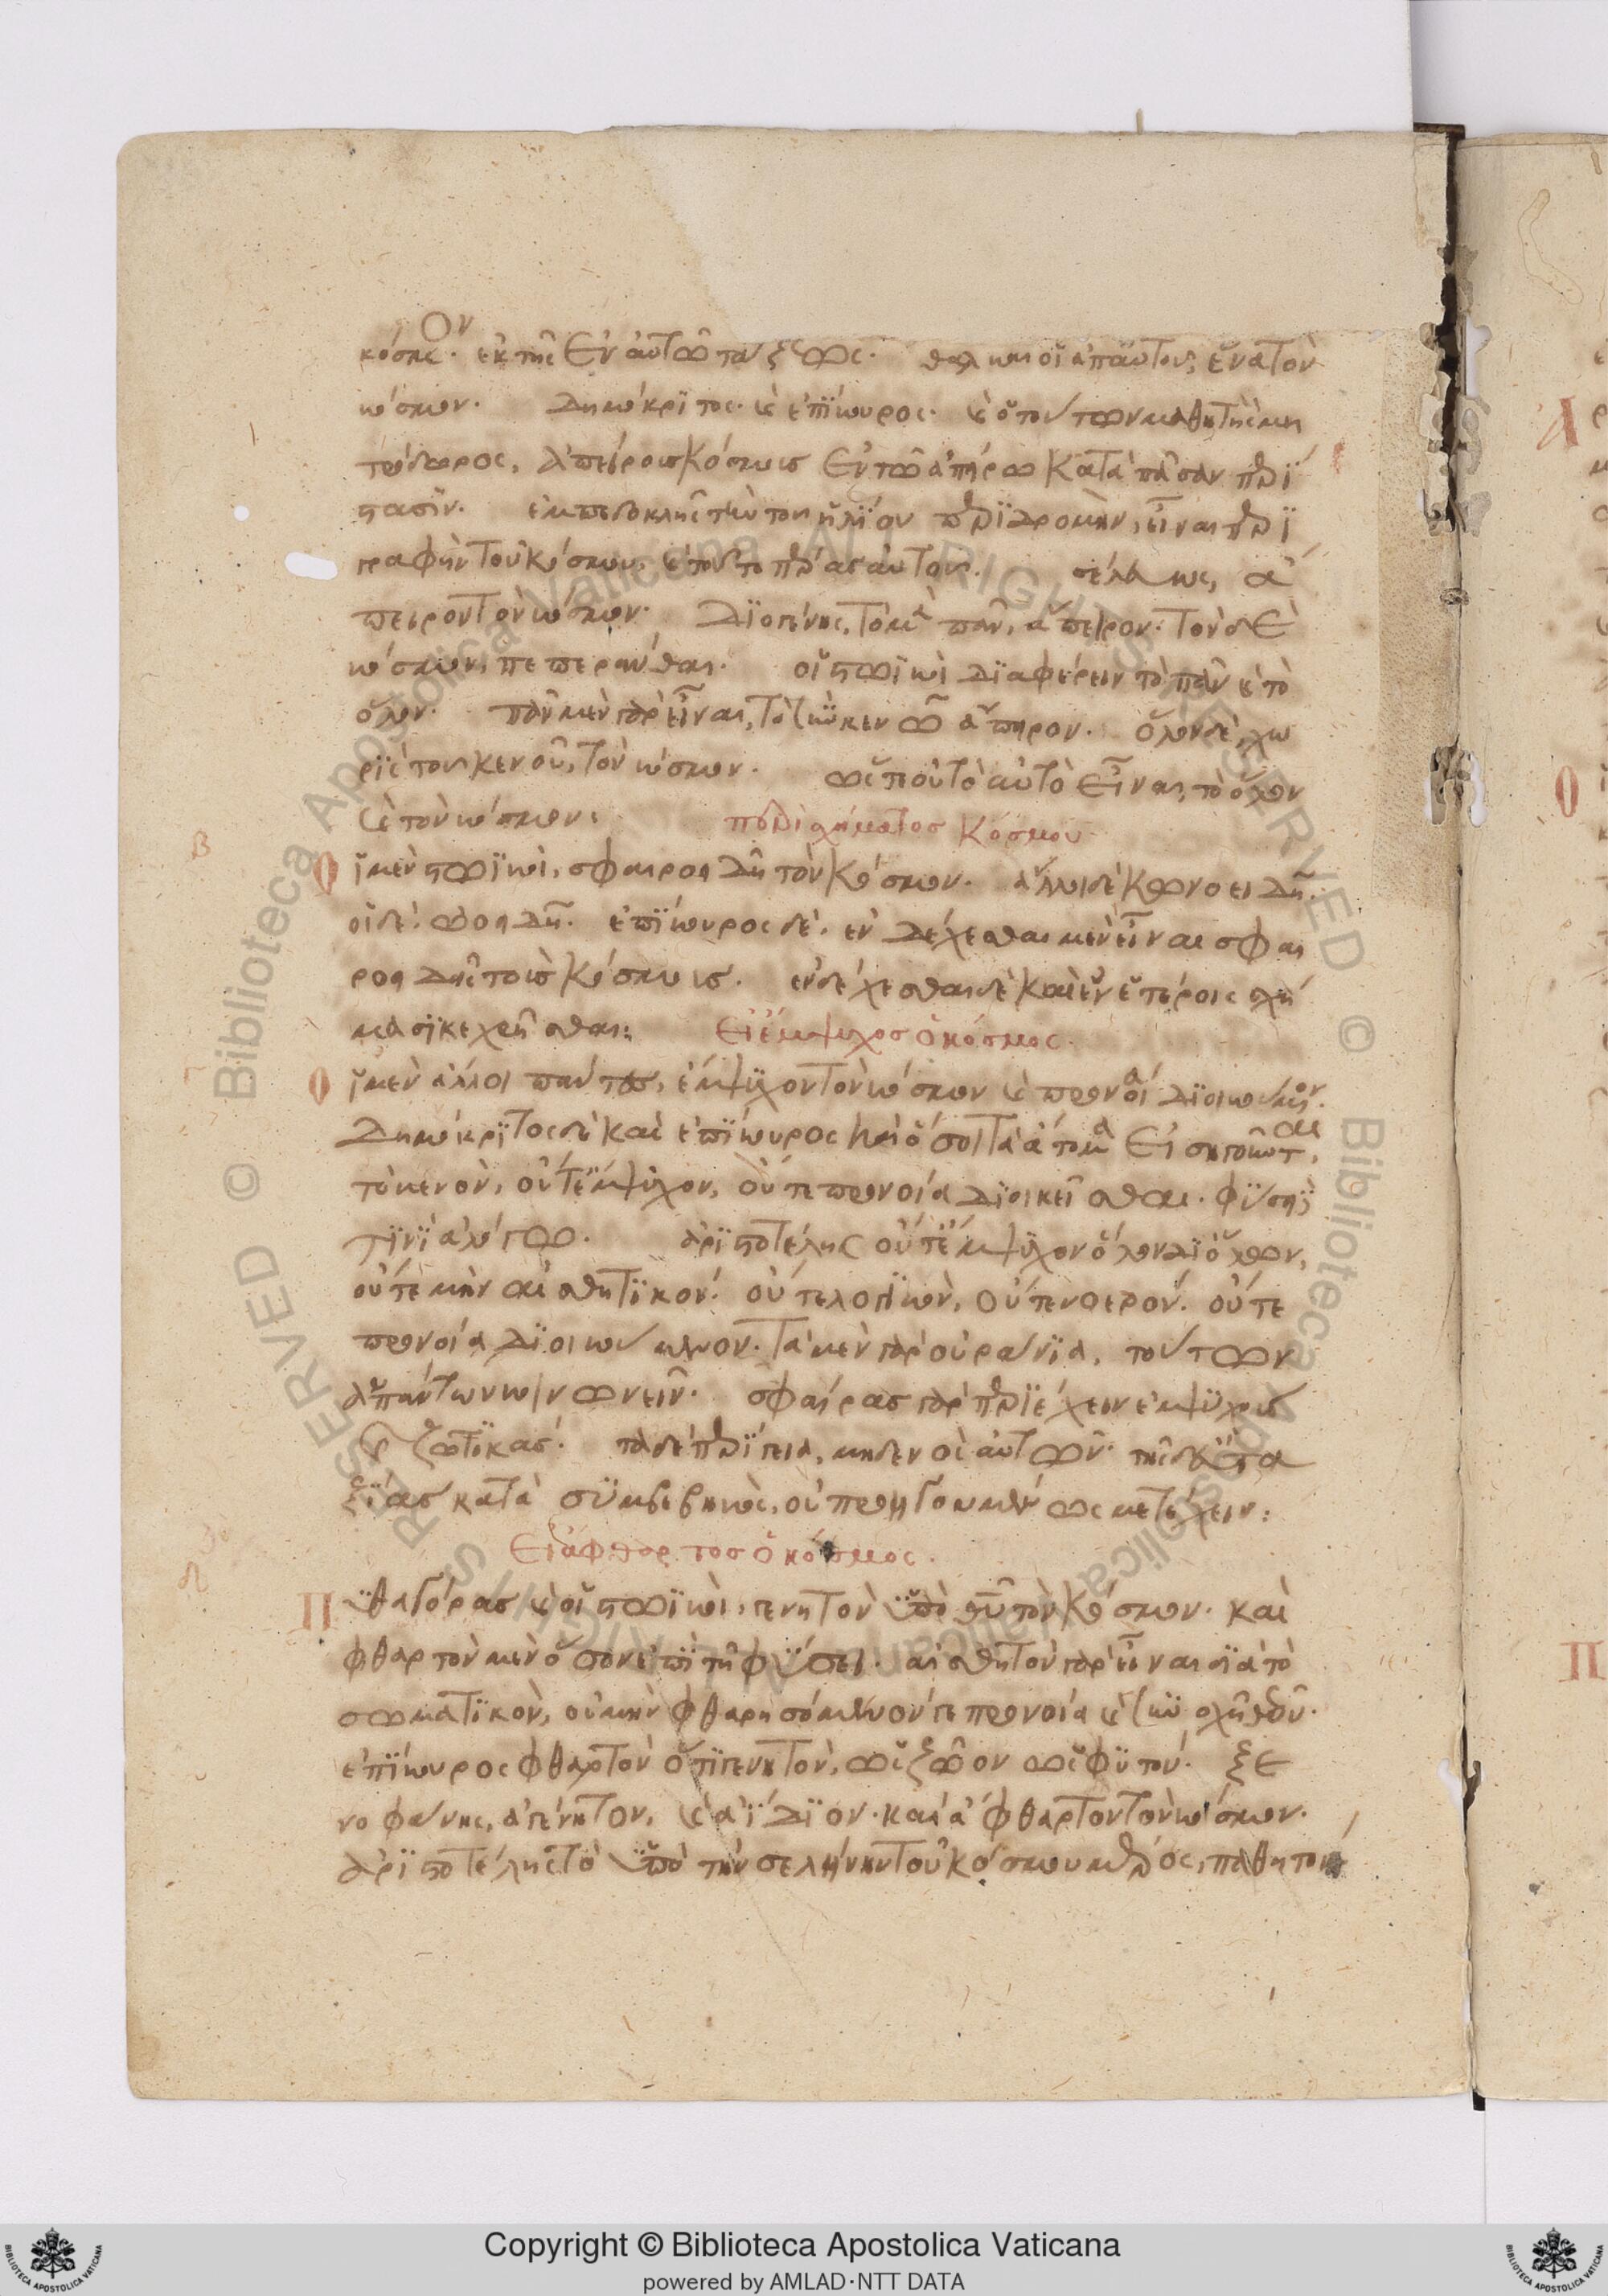 κόσμον· ἐκ τῆς ἐν αὐτῶ τάξεως· θαλῆς καὶ οἱ ἀπ' αὐτοῦ, ἕνα τὸν
κόσμον· Δημόκριτος· καὶ ἐπίκουρος· καὶ ὁ τούτων μαθητὴς μη
τρόδωρος, ἀπείρους κόσμους ἐν τῶ ἀπείρω κατὰ πᾶσαν περί
στασιν· ἐμπεδοκλῆς τὴν τοῦ ἡλίου περιδρομὴν, εἶναι περι
γραφὴν τοῦ κόσμου, καὶ τοῦτο πέρας αὐτοῦ. σέλευκος, ἄ
πειρον τὸν κόσμον· Διογένης, τὸ μὲν πᾶν, ἄπειρον· τὸν δὲ
κόσμον πεπεράνθαι· οἱ στωϊκοὶ διαφέρειν τὸ πᾶν καὶ τὸ
ὅλον· πᾶν μὲν γὰρ εἶναι, τὸ σὺν κενῶ ἄπειρον· ὅλον δὲ, χω
ρὶς τοῦ κενοῦ, τὸν κόσμον· ὥστε οὐ τὸ αὐτὸ εἶναι, τὸ ὅλον
καὶ τὸν κόσμον: περὶ σχήματος κόσμου
β
Οἱ μὲν στωϊκοὶ, σφαιροειδῆ τὸν κόσμον· ἄλλοι δὲ κωνοειδῆ·
οἱ δὲ· ὠοειδῆ· ἐπίκουρος δὲ· ἐνδέχεσθαι μὲν εἶναι σφαι
ροειδεῖς τοὺς κόσμους· ἐνδέχεσθαι δὲ καὶ ἑτέροις σχή
μασι κεχρῆσθαι: Εἰ ἔμψυχος ὁ κόσμος·
Οἱ μὲν ἄλλοι πάντες, ἔμψυχον τὸν κόσμον καὶ προνοία διοικούμενον·
Δημόκριτος δὲ καὶ ἐπίκουρος καὶ ὅσοι τὰ ἄτομα εἰσηγοῦνται,
τὸ κενὸν, οὔτ' ἔμψυχον, οὔτε προνοία διοικεῖσθαι· φύσει
τινὶ ἀλόγω· ἀριστοτέλης οὔτ' ἔμψυχον ὅλον δι' ὅλων,
οὔτε μὴν αἰσθητικόν· οὔτε λογικὸν, οὔτε νοερόν· οὔτε
προνοία διοικούμενον· τὰ μὲν γὰρ οὐράνια, τούτων
ἁπάντων κοινωνεῖν· σφαίρας γὰρ περιέχειν ἐμψύχους
καὶ ζωτικάς· τὰ δὲ περίγεια, μηδενὸς αὐτῶν· τῆς δ' εὐτα
ξίας κατὰ συμβεβηκὸς, οὐ προηγουμένως μετέχειν:
Εἰ ἄφθαρτος ὁ κόσμος·
δ
Πυθαγόρας καὶ οἱ στωϊκοὶ, γενητὸν ὑπὸ θεοῦ τὸν κόσμον· καὶ
φθαρτὸν μὲν ὅσον ἐπὶ τῆ φύσει· αἰσθητὸν γὰρ εἶναι διὰ τὸ
σωματικὸν, οὐ μὴν φθαρησόμενόν γε προνοία καὶ συνοχῆ θεοῦ·
ἐπίκουρος φθαρτὸν ὅτι γενητὸν, ὡς ζῶον ὡς φυτόν· ξε
νοφάνης, ἀγένητον, καὶ ἀΐδιον· καὶ ἄφθαρτον τὸν κόσμον·
ἀριστοτέλης τὸ ὑπὸ τὴν σελήνην τοῦ κόσμου μέρος, παθητὸν
Copyright © Biblioteca Apostolica Vaticana
powered by AMLAD·NTT DATA